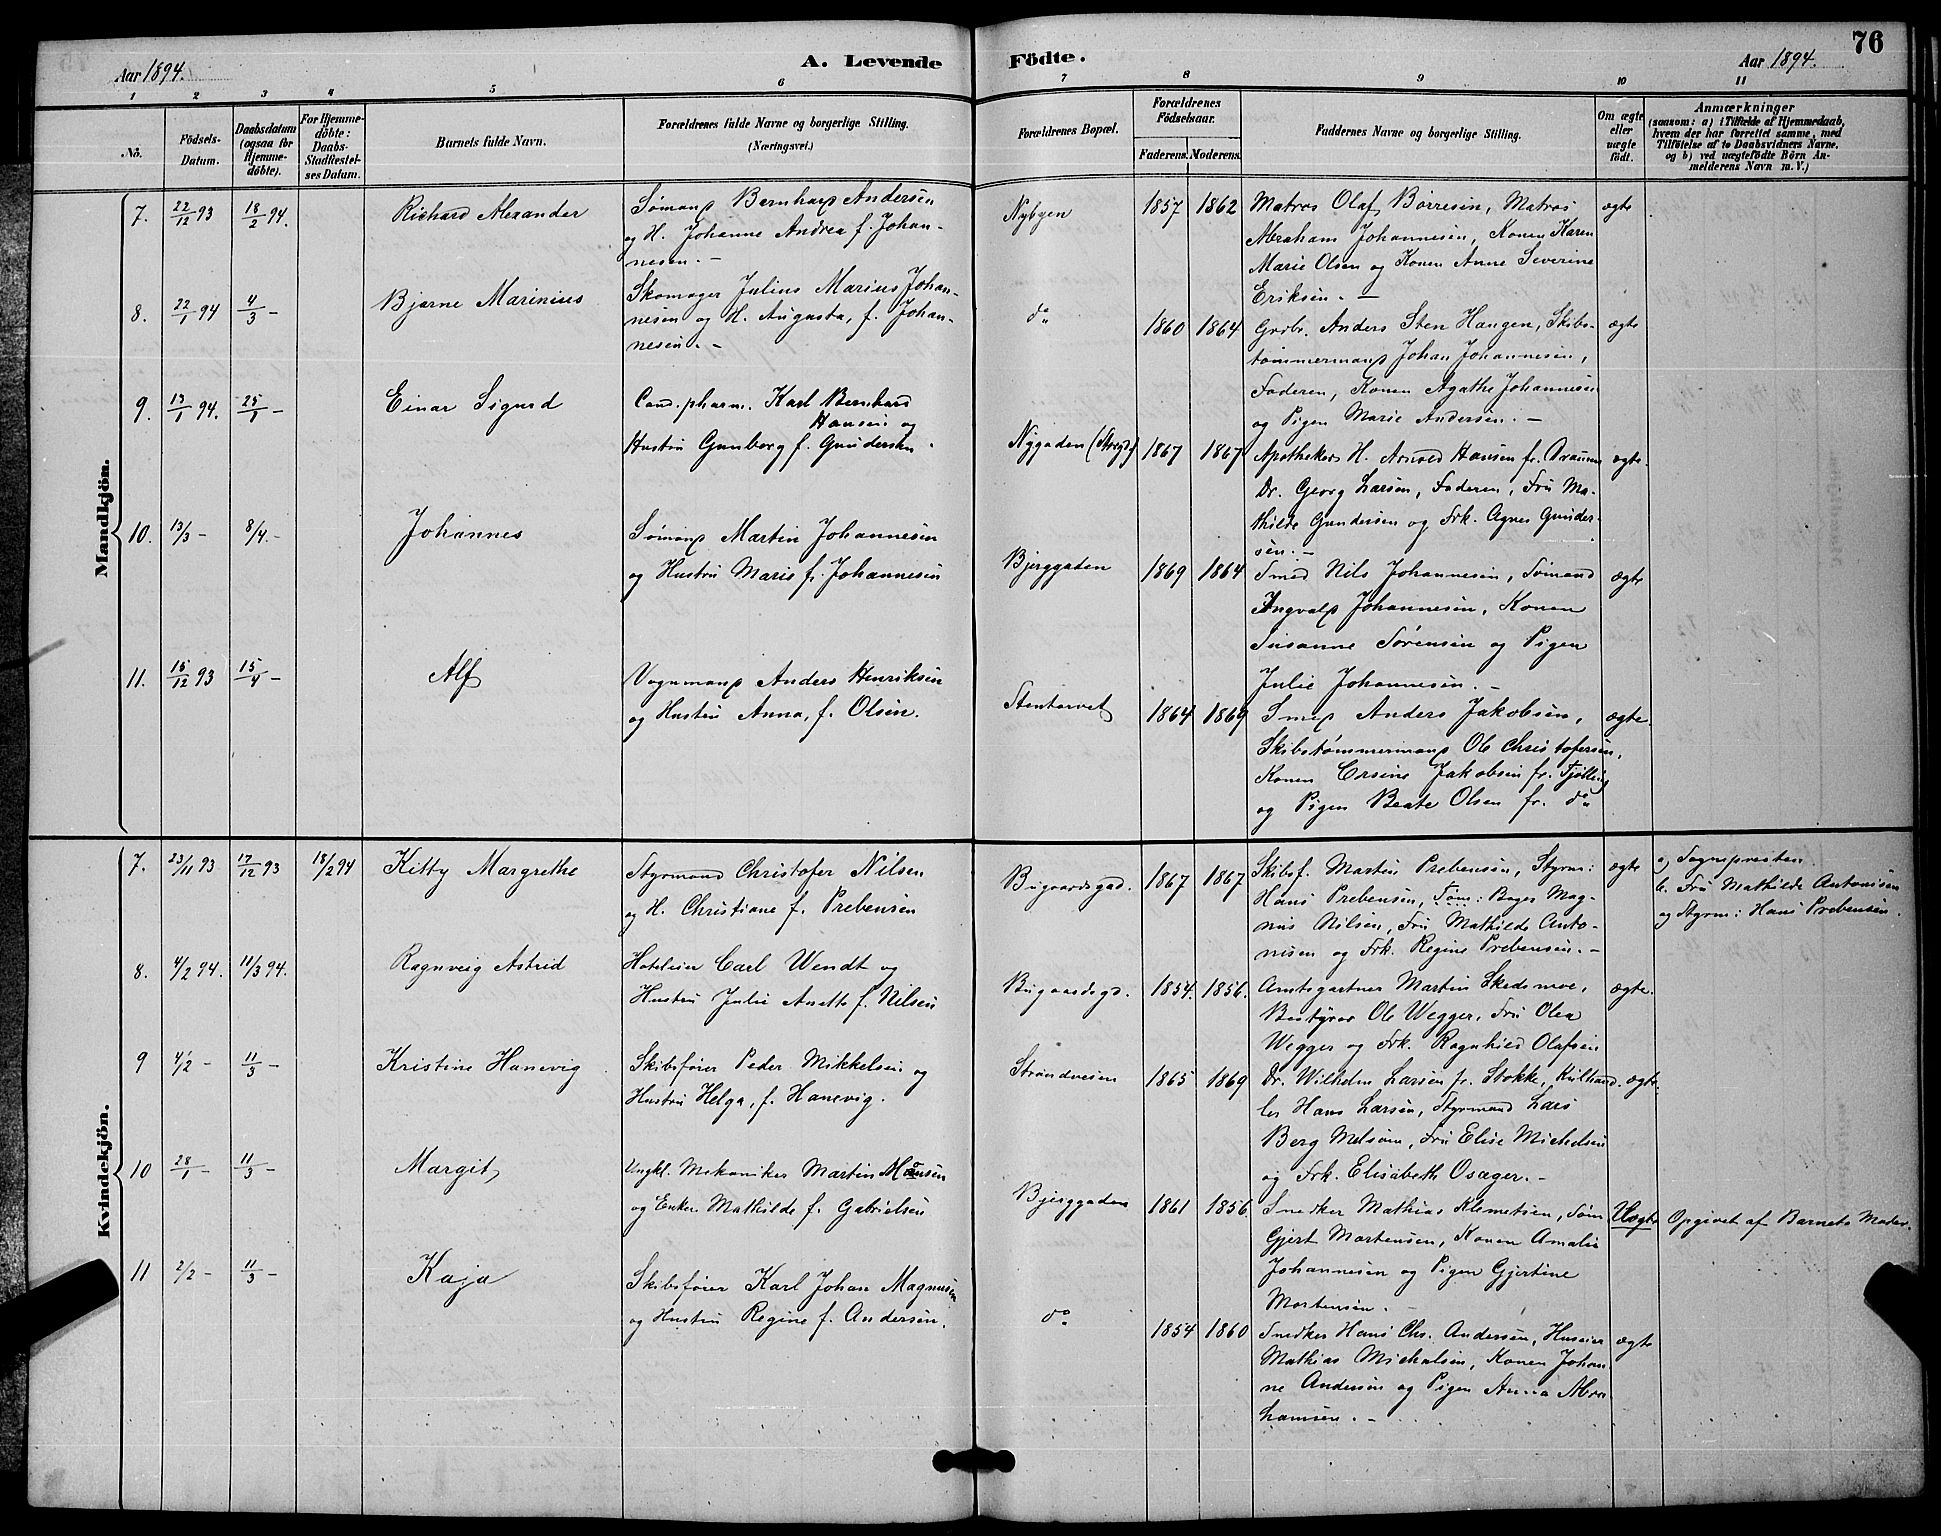 Aar 1894.
A. Levende
Födte.
Aar 1894.
76
1 2 3 4 5 6 7 8 9 10 11
No.
Födsels-Datum.
Daabsdatum (ogsaa for Hjemme-döbte).
For Hjemme-döbte: Daabs-Stadfæstel-ses Datum.
Barnets fulde Navn.
Forældrenes fulde Navne og borgerlige Stilling.
(Næringsvei.)
Forældrenes Bopæl.
Forældrenes Födselsaar.
Faderens. Moderens.
Faddernes Navne og borgerlige Stilling.
Om ægte eller uægte födt.
Anmærkninger
(saasom: a) i Tilfælde af Hjemmedaab,
hvem der har forrettet samme, med
Tilföielse af to Daabsvidners Navne,
og b) ved uægtefödte Börn An-
melderens Navn m. V.)
Mandkjön.
7. 22/12 93 18/2 94. Richard Alexander
Sømand Bernhard Andersen
og H. Johanne Andrea f. Johan-
nesen. -
Nybyen 1857 1862
Matros Olaf Børresen, Matros
Abraham Johannesen, Konen Karen
Marie Olsen og Konen Anne Severine
Eriksen. -
ægte
8. 22/1 94 4/3 - Bjarne Marinius
Skomager Julius Marius Johan-
nesen og H. Augusta, f. Johan-
nesen. -
do 1860 1864
Grbr. Anders Sten Haugen, Skibs-
tømmermand Johan Johannesen,
Faderen, Konen Agathe Johannesen
og Pigen Marie Andersen. -
ægte
9. 13/1 94. 25/1 - Einar Sigurd
Cand. pharm. Karl Bernhard
Hansen og
Hustru Gunborg f. Gundersen.
Nygaden (Storgd) 1867 1867
Apotheker H. Arnold Hansen fr.
Dr. Georg Larsen, Faderen, Fru Ma-
thilde Gundersen og Frk. Agnes Gunder-
sen. -
ægte.
10. 13/3 - 8/4. - Johannes
Sømand Martin Johannesen
og Hustru Marie f. Johannesen
Bjerggaden 1869 1864
Smed Nils Johannesen, Sømand
Ingvald Johannesen, Konen
Susanne Sørensen og Pigen
Julie Johannesen. -
ægte
11. 15/12 93 15/4 - Alf
Vognmand Anders Henriksen
og Hustru Anna, f. Olsen.
Stentorvet 1864 1869
Smed Anders Jakobsen,
Skibstømmermand Ole Christofersen,
Konen Orsine Jakobsen fr. Tjølling
og Pigen Beate Olsen fr. do
ægte.
Kvindekjön.
7. 23/11 93 17/12 93 18/2 94 Kitty Margrethe
Styrmand Christofer Nilsen
og H. Christiane f. Prebensen
Bugaardsgad. 1867 1867
Skibsf. Martin Prebensen, Styrm:
Hans Prebensen, Tøm: Bager Mag-
nus Nilsen, Fru Mathilde Anto-
nisen og Frk. Regine Prebensen. -
ægte
a, Sognepresten.
b. Fru Mathilde Antonisen
og Styrm: Hans Prebensen.
8. 4/2 94. 11/3 94. Ragnveig Astrid
Hoteleier Carl Wendt og
Hustru Julie Anette f. Nilsen
Bugaardsgd. 1854. 1856.
Amtsgartner Martin Skedsmoe,
Bestyrer Ole Wegger, Fru Olea
Wegger og Frk. Ragnhild Olafsen
ægte.
9 4/2 - 11/3 - Kristine Hanevig
Skibsfører Peder Mikkelsen og
Hustru Helga, f. Hanevig.
Strandveien 1865 1869
Dr. Wilhelm Larsen fr. Stokke, Kulhand-
ler Hans Larsen, Styrmand Lars
Berg Melsom, Fru Elise Michelsen
og Frk. Elisabeth Osæger. -
ægte.
10 28/1 - 11/3 - Margit
Ungkl. Mekaniker Martin Hansen
og Enke Mathilde f. Gabrielsen
Bjerggaden 1861 1856
Snedker Mathias Klemetsen, Søm
Gjert Mortensen, Konen Amalie
Johannesen og Pigen Gjertine
Mortensen. -
Uægte
Opgivet af Barnets Moder.
11 2/2 - 11/3 - Kaja
Skibsfører Karl Johan Magnusen
og Hustru Regine f. Andersen.
do 1854 1860
Snedker Hans Chr. Andersen, Huseier
Mathias Michalsen, Konen Johan-
ne Andersen og Pigen Anna Abra-
hamsen. -
ægte